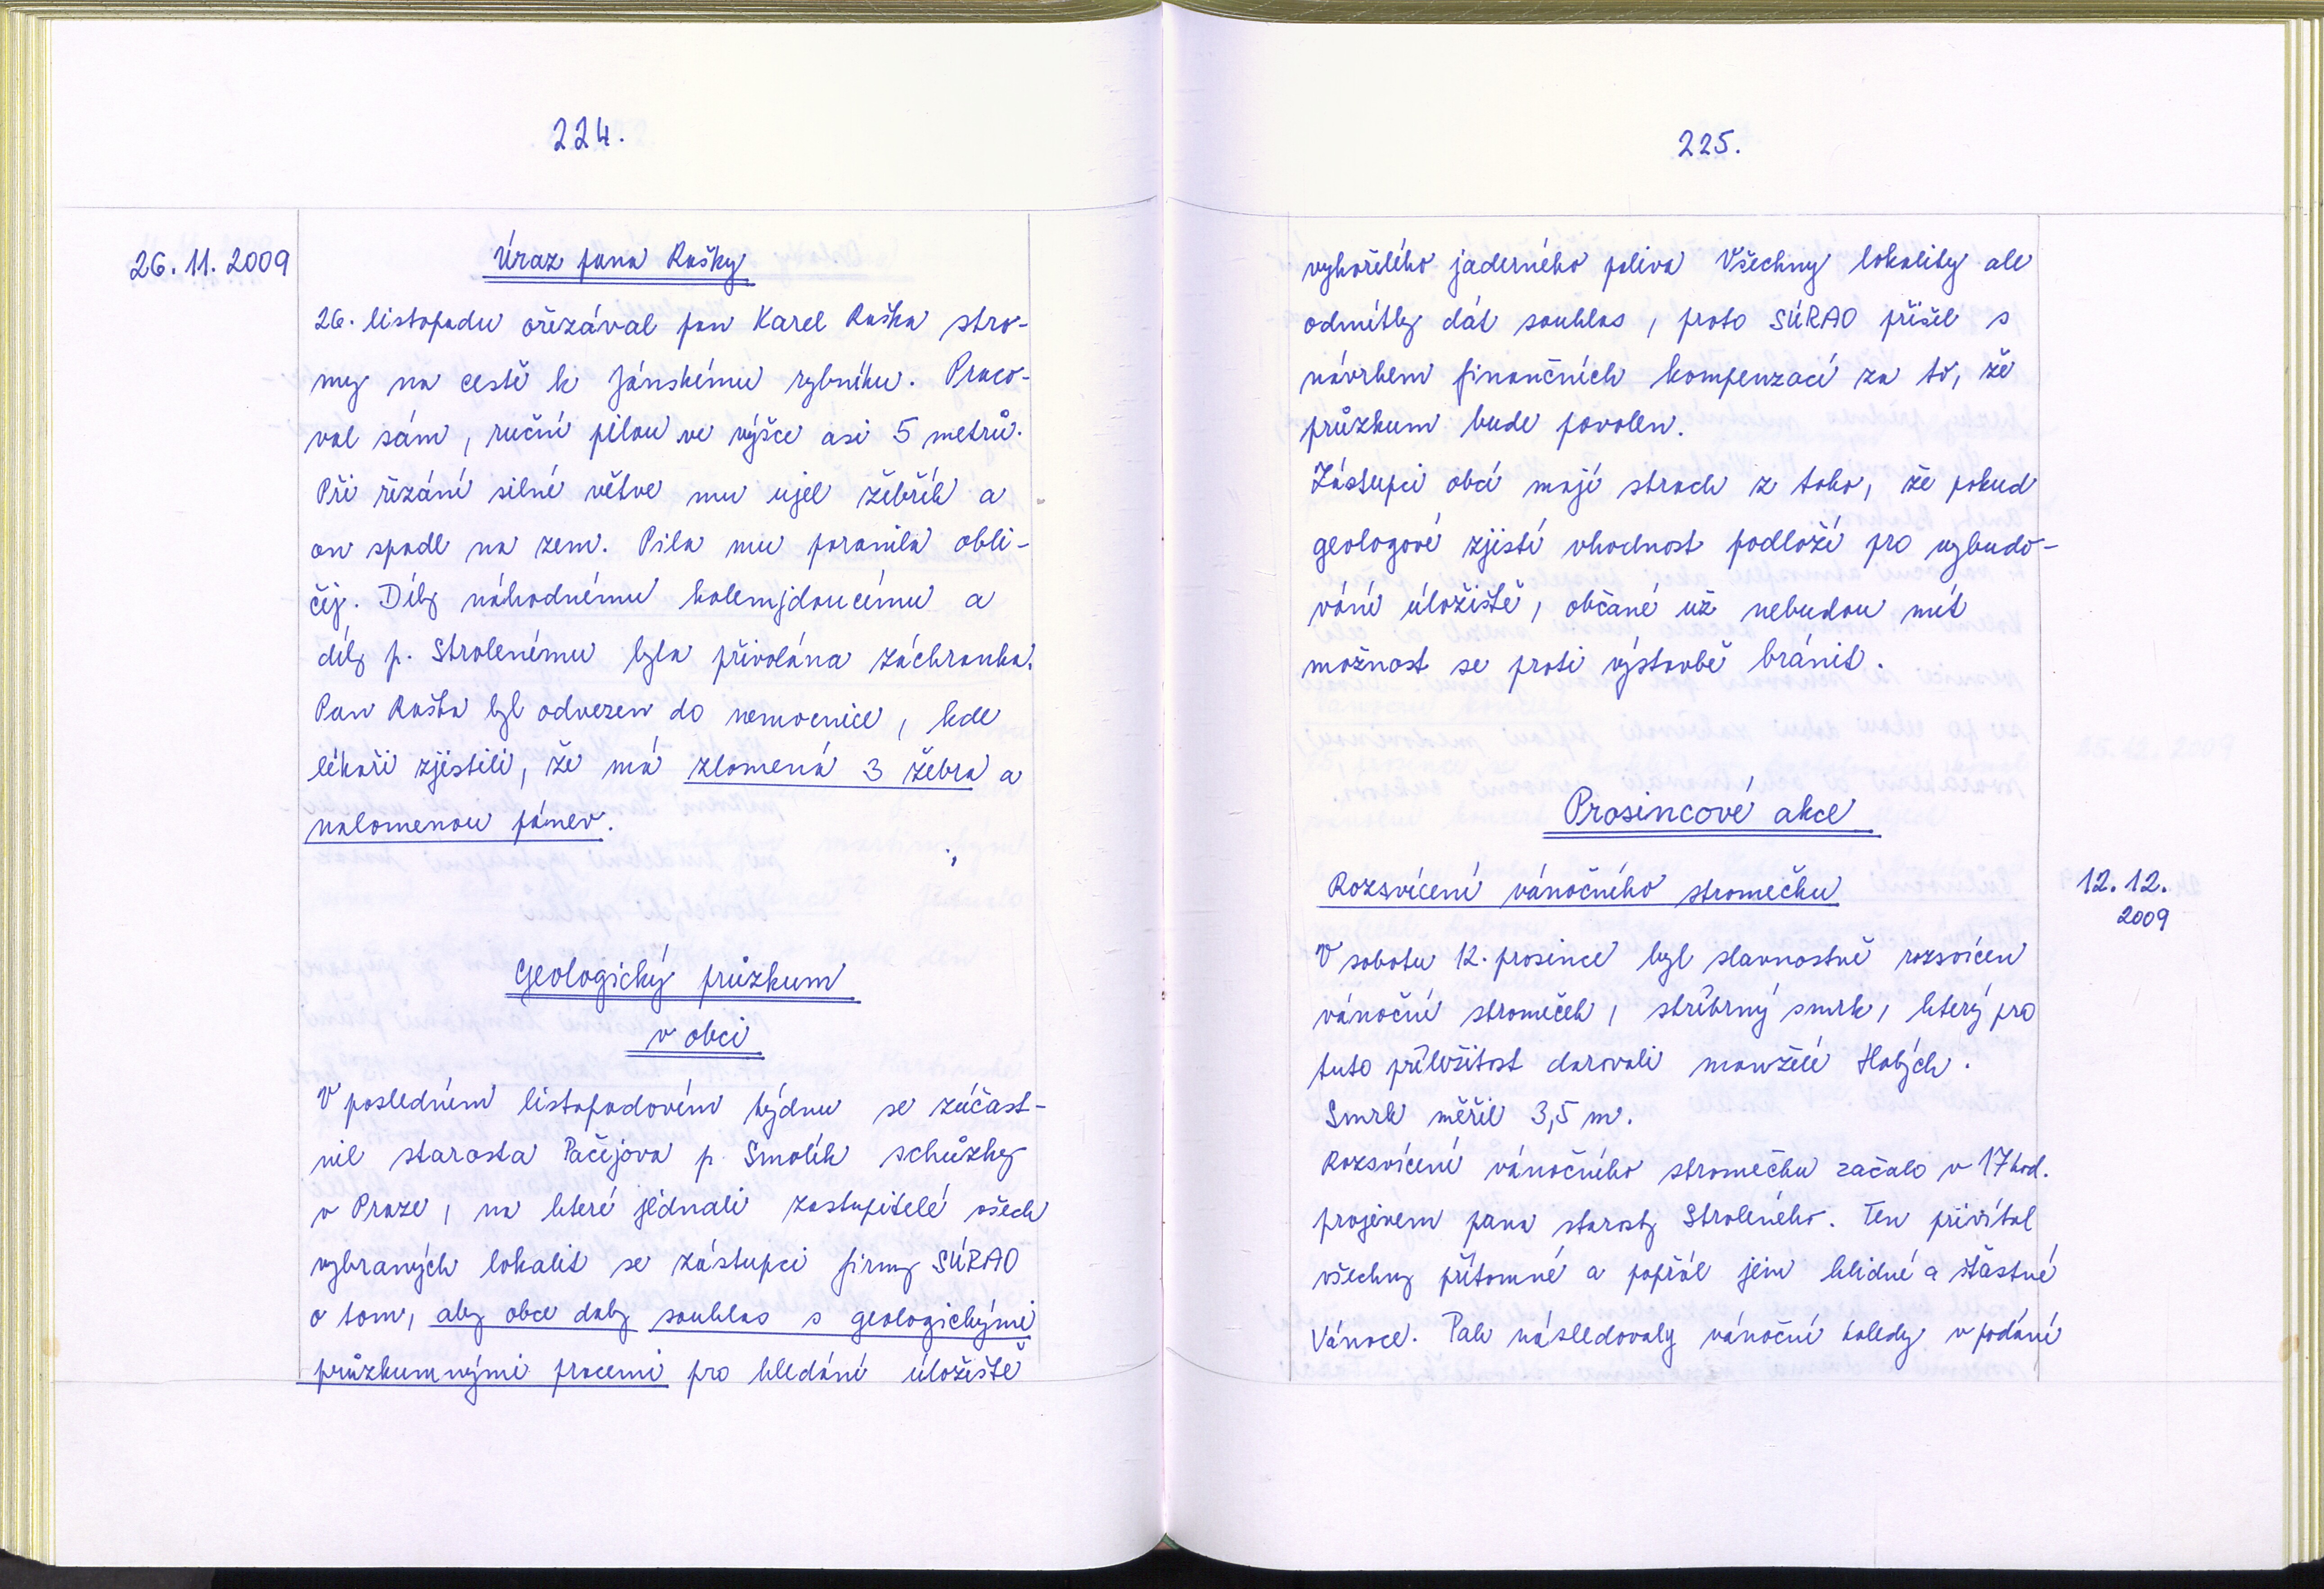 224.
26. 11. 2009
Úraz pana Rašky
26. listopadu ořezával pan Karel Raška stro-
my na cestě k Jánskému rybníku. Praco-
val sám, ruční pilou ve výšce asi 5 metrů.
Při řezání silné větve mu ujel žebřík a
on spadl na zem. Pila mu poranila obli-
čej. Díky náhodnému kolemjdoucímu a
díky p. Strolenému byla přivolána záchranka.
Pan Raška byl odvezen do nemocnice, kde
lékaři zjistili, že má zlomená 3 žebra a
nalomenou pánev.
Geologický průzkum
v obci
V posledním listopadovém týdnu se zúčast-
nil starosta Pačejova p. Smolík schůzky
v Praze, na které jednali zastupitelé všech
vybraných lokalit se zástupci firmy SÚRAO
o tom, aby obce daly souhlas s geologickými
průzkumnými pracemi pro hledání úložiště
225.
vyhořelého jaderného paliva Všechny lokality ale
odmítly dát souhlas, proto SÚRAO přišel s
návrhem finančních kompenzací za to, že
průzkum bude povolen.
Zástupci obcí mají strach z toho, že pokud
geologové zjistí vhodnost podloží pro vybudo-
vání úložiště, občané už nebudou mít
možnost se proti výstavbě bránit.
Prosincové akce
Rozsvícení vánočního stromečku
12. 12.
2009
V sobotu 12. prosince byl slavnostně rozsvícen
vánoční stromeček, stříbrný smrk, který pro
tuto příležitost darovali manželé Habých.
Smrk měřil 3,5 m.
Rozsvícení vánočního stromečku začalo v 17 hod.
projevem pana starosty Stroleného. Ten přivítal
všechny přítomné a popřál jim klidné a šťastné
Vánoce. Pak následovaly vánoční koledy v podání